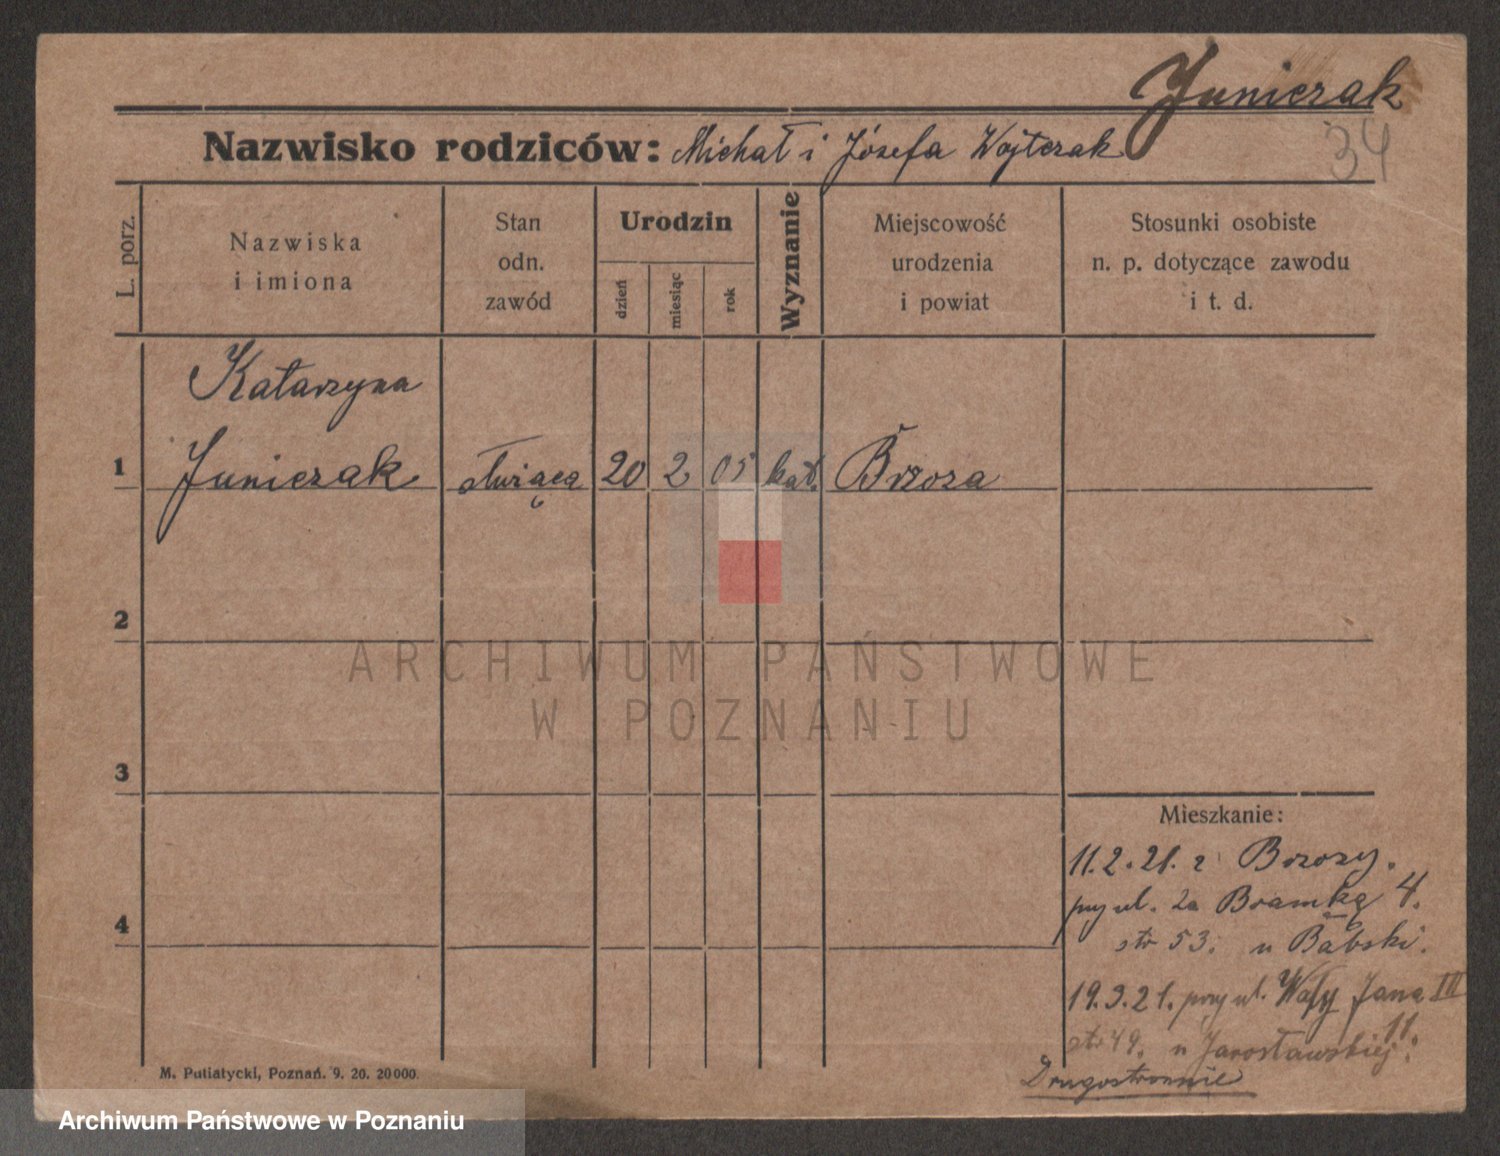 Juniczak
34
Nazwisko rodziców: Michał i Józefa Wojtczak
L. porz.
Nazwiska
i imiona
Stan
odn.
zawód
Urodzin
dzień
miesiąc
rok
Wyznanie
Miejscowość
urodzenia
i powiat
Stosunki osobiste
n. p. dotyczące zawodu
i t. d.
Katarzyna
1 Juniczak służąca 20 2 05 kat. Brzoza
2
3
4
Mieszkanie:
11.2.21. z Brzozy.
przy ul. Za Bramką 4.
str 53. u Bąbski.
19.3.21. przy ul. Wały Jana III
11.
str 49. u Jarosławskiej.
Drugostronnie
M. Putiatycki, Poznań. 9. 20. 20000.
ARCHIWUM PAŃSTWOWE
W POZNANIU
Archiwum Państwowe w Poznaniu